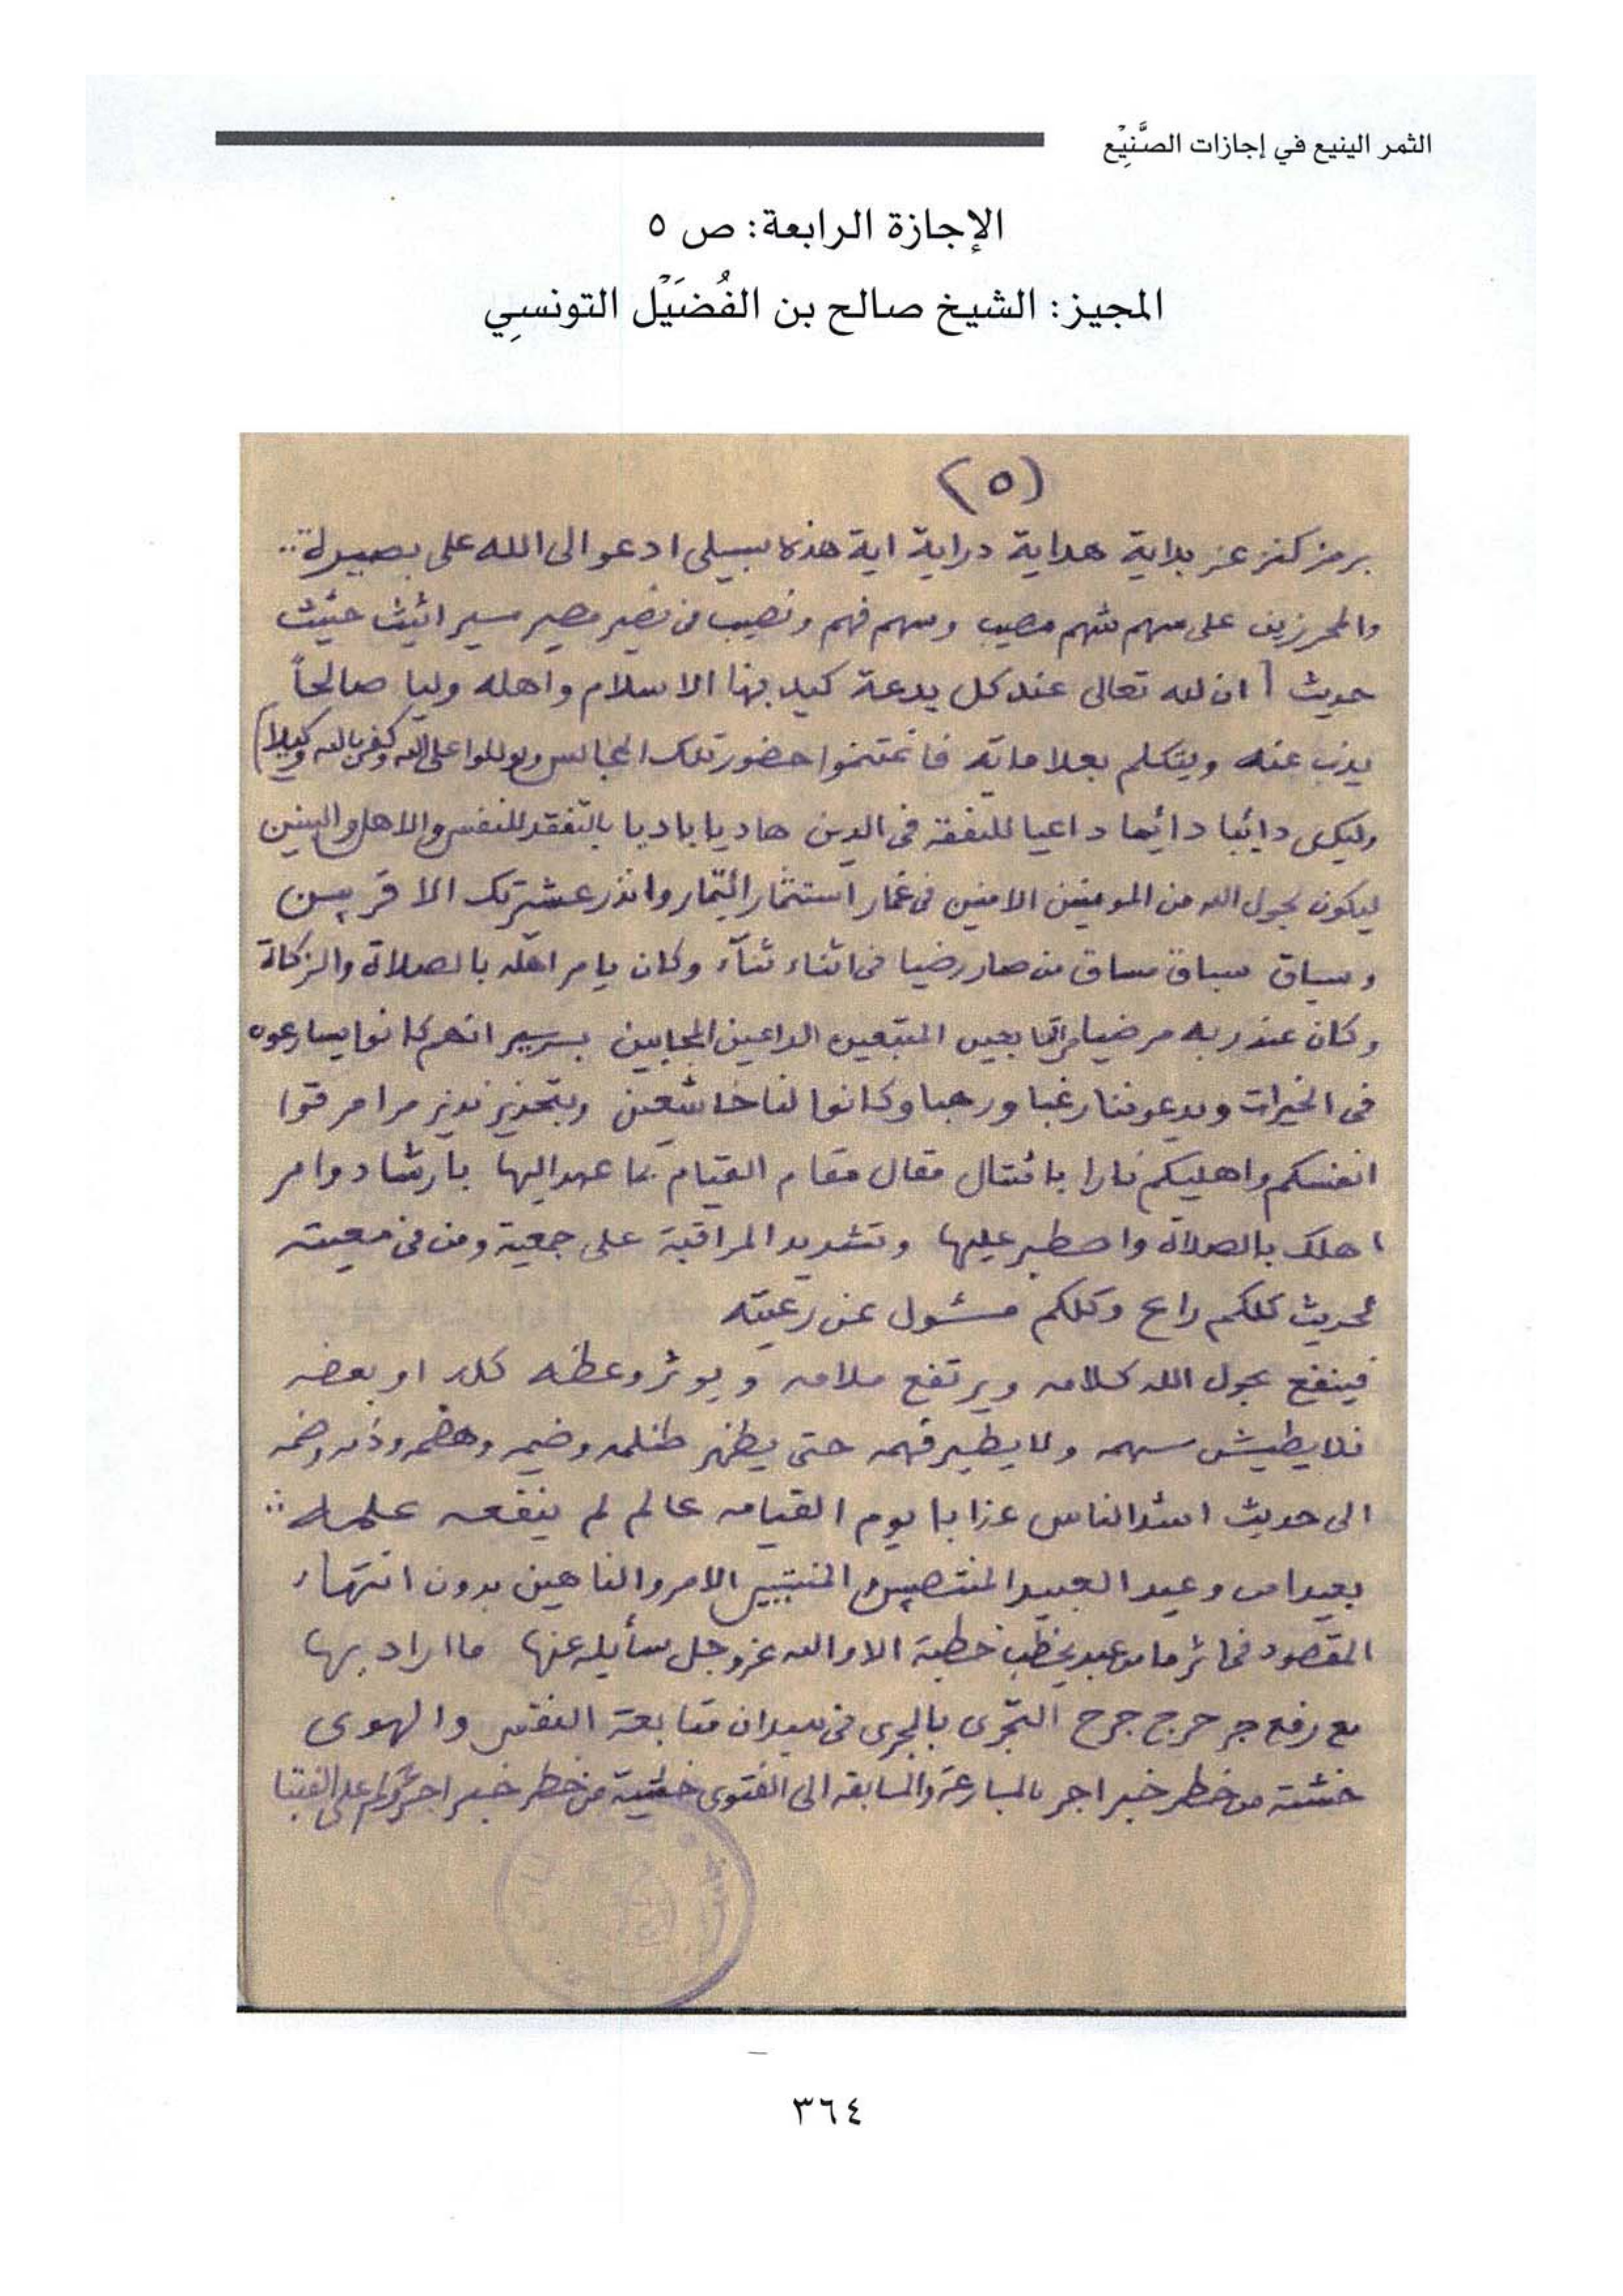 الثمر الينيع في إجازات الصَّنِيْع
الإجازة الرابعة: ص ٥
المجيز: الشيخ صالح بن الفُضَيْل التونسِي
(٥)
برمز كنز عز بداية هداية دراية اية هذه سبيلى ادعو الى الله على بصيرة
والمحرزين على سهم شهم مصيب وسهم فهم ونصيب من نصير مصير مسير اثيث حثيث
حديث [ان لله تعالى عند كل بدعة كيد بها الاسلام واهله وليا صالحاً
يذب عنه ويتكلم بعلاماته فاغتنموا حضور تلك المجالس وتوكلوا على الله وكفى بالله وكيلا]
وليكن دائبا دائما داعيا للتفقه فى الدين هاديا باديا بالتفقد للنفس والاهل والبنين
ليكون بحول الله من المومنين الامنين فى غمار استثمار ائتمار وانذر عشيرتك الاقربين
وسياق سباق مساق من صار رضيا فى اثناء ثناء وكان يامر اهله بالصلاة والزكاة
وكان عند ربه مرضيا من التابعين المتبعين الداعين المجابين بسير انهم كانوا يسارعون
فى الخيرات ويدعوننا رغبا ورهبا وكانوا لنا خاشعين وبتحذير نذير مرامر قوا
انفسكم واهليكم نارا بامتثال مقال مقام القيام بما عهد اليها بارشاد وامر
اهلك بالصلاة واصطبر عليها وتشديد المراقبة على جمعية ومن فى معيته
لحديث كلكم راع وكلكم مسئول عن رعيته
فينفع بحول الله كلامه ويرتفع ملامه ويوثر وعظه كله او بعضه
فلا يطيش سهمه ولا يطير فهمه حتى يظهر ظلمه وضيمه وهضمه وذمه
الى حديث اشد الناس عذابا يوم القيامه عالم لم ينفعه علمه
بعيدا من وعيد العبيد المنتصبين الامر والناهين بدون انتهاء
المقصود فى اثر ما من عبد يخطب خطبة الا والله عز وجل سائله عنها ما اراد بها
مع رفع جر حرج جرح التجرى بالجرى فى ميدان متابعة النفس والهوى
خشية من خطر خبر اجر بالمسارعة والمسابقه الى الفتوى خشية من خطر خبر اجرؤكم على الفتيا
٣٦٤